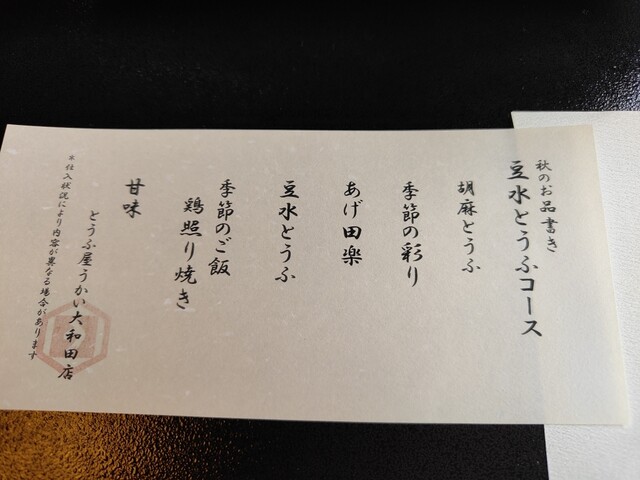 秋のお品書き
豆水とうふコース
胡麻とうふ
季節の彩り
あげ田楽
豆水とうふ
季節のご飯
鶏照り焼き
甘味
とうふ屋うかい大和田店
※仕入状況により内容が異なる場合があります